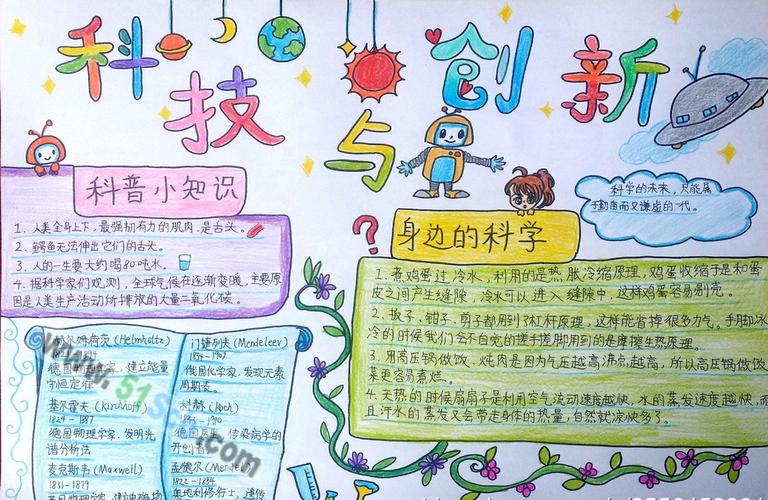 科技与创新
科普小知识
1、人类全身上下,最强韧有力的肌肉,是舌头。
2、鳄鱼无法伸出它们的舌头。
3、人的一生要大约喝80吨水。
4、据科学家们观测,全球气候在逐渐变暖,主要原
因是人类生产活动所排放的大量二氧化碳。
科学的未来,只能属
于勤奋而又谦虚的一代。
身边的科学
1、煮鸡蛋过冷水,利用的是热胀冷缩原理,鸡蛋收缩于是和蛋
皮之间产生缝隙,冷水可以进入缝隙中,这样鸡蛋容易剥壳。
2、扳子、钳子、剪子都用到了杠杆原理,这样能省掉很多力气。手脚冰
冷的时候我们会不自觉的搓手搓脚用到的是摩擦生热原理.
3、用高压锅做饭、炖肉是因为气压越高沸点越高,所以高压锅做饭
菜更容易煮烂。
4、天热的时候扇扇子是利用空气流动速度越快,水的蒸发速度越快,而
且汗水的蒸发又会带走身体的热量,自然就凉快多了。
赫尔姆荷茨(Helmholtz)
德国 学家,建立能量
守恒定律
基尔霍夫(Kirchhoff)
1824-1887
德国物理学家,发明光
谱分析法
麦克斯韦(Maxwell)
1831-1879
门捷列夫(Mendeleev)
1834-1907
俄国化学家,发现元素
周期表。
科赫(Koch)
1843-1910
德国医 传染病学的
开创者
孟德尔(Mendel)
1822-1884
奥地利修行士,遗传